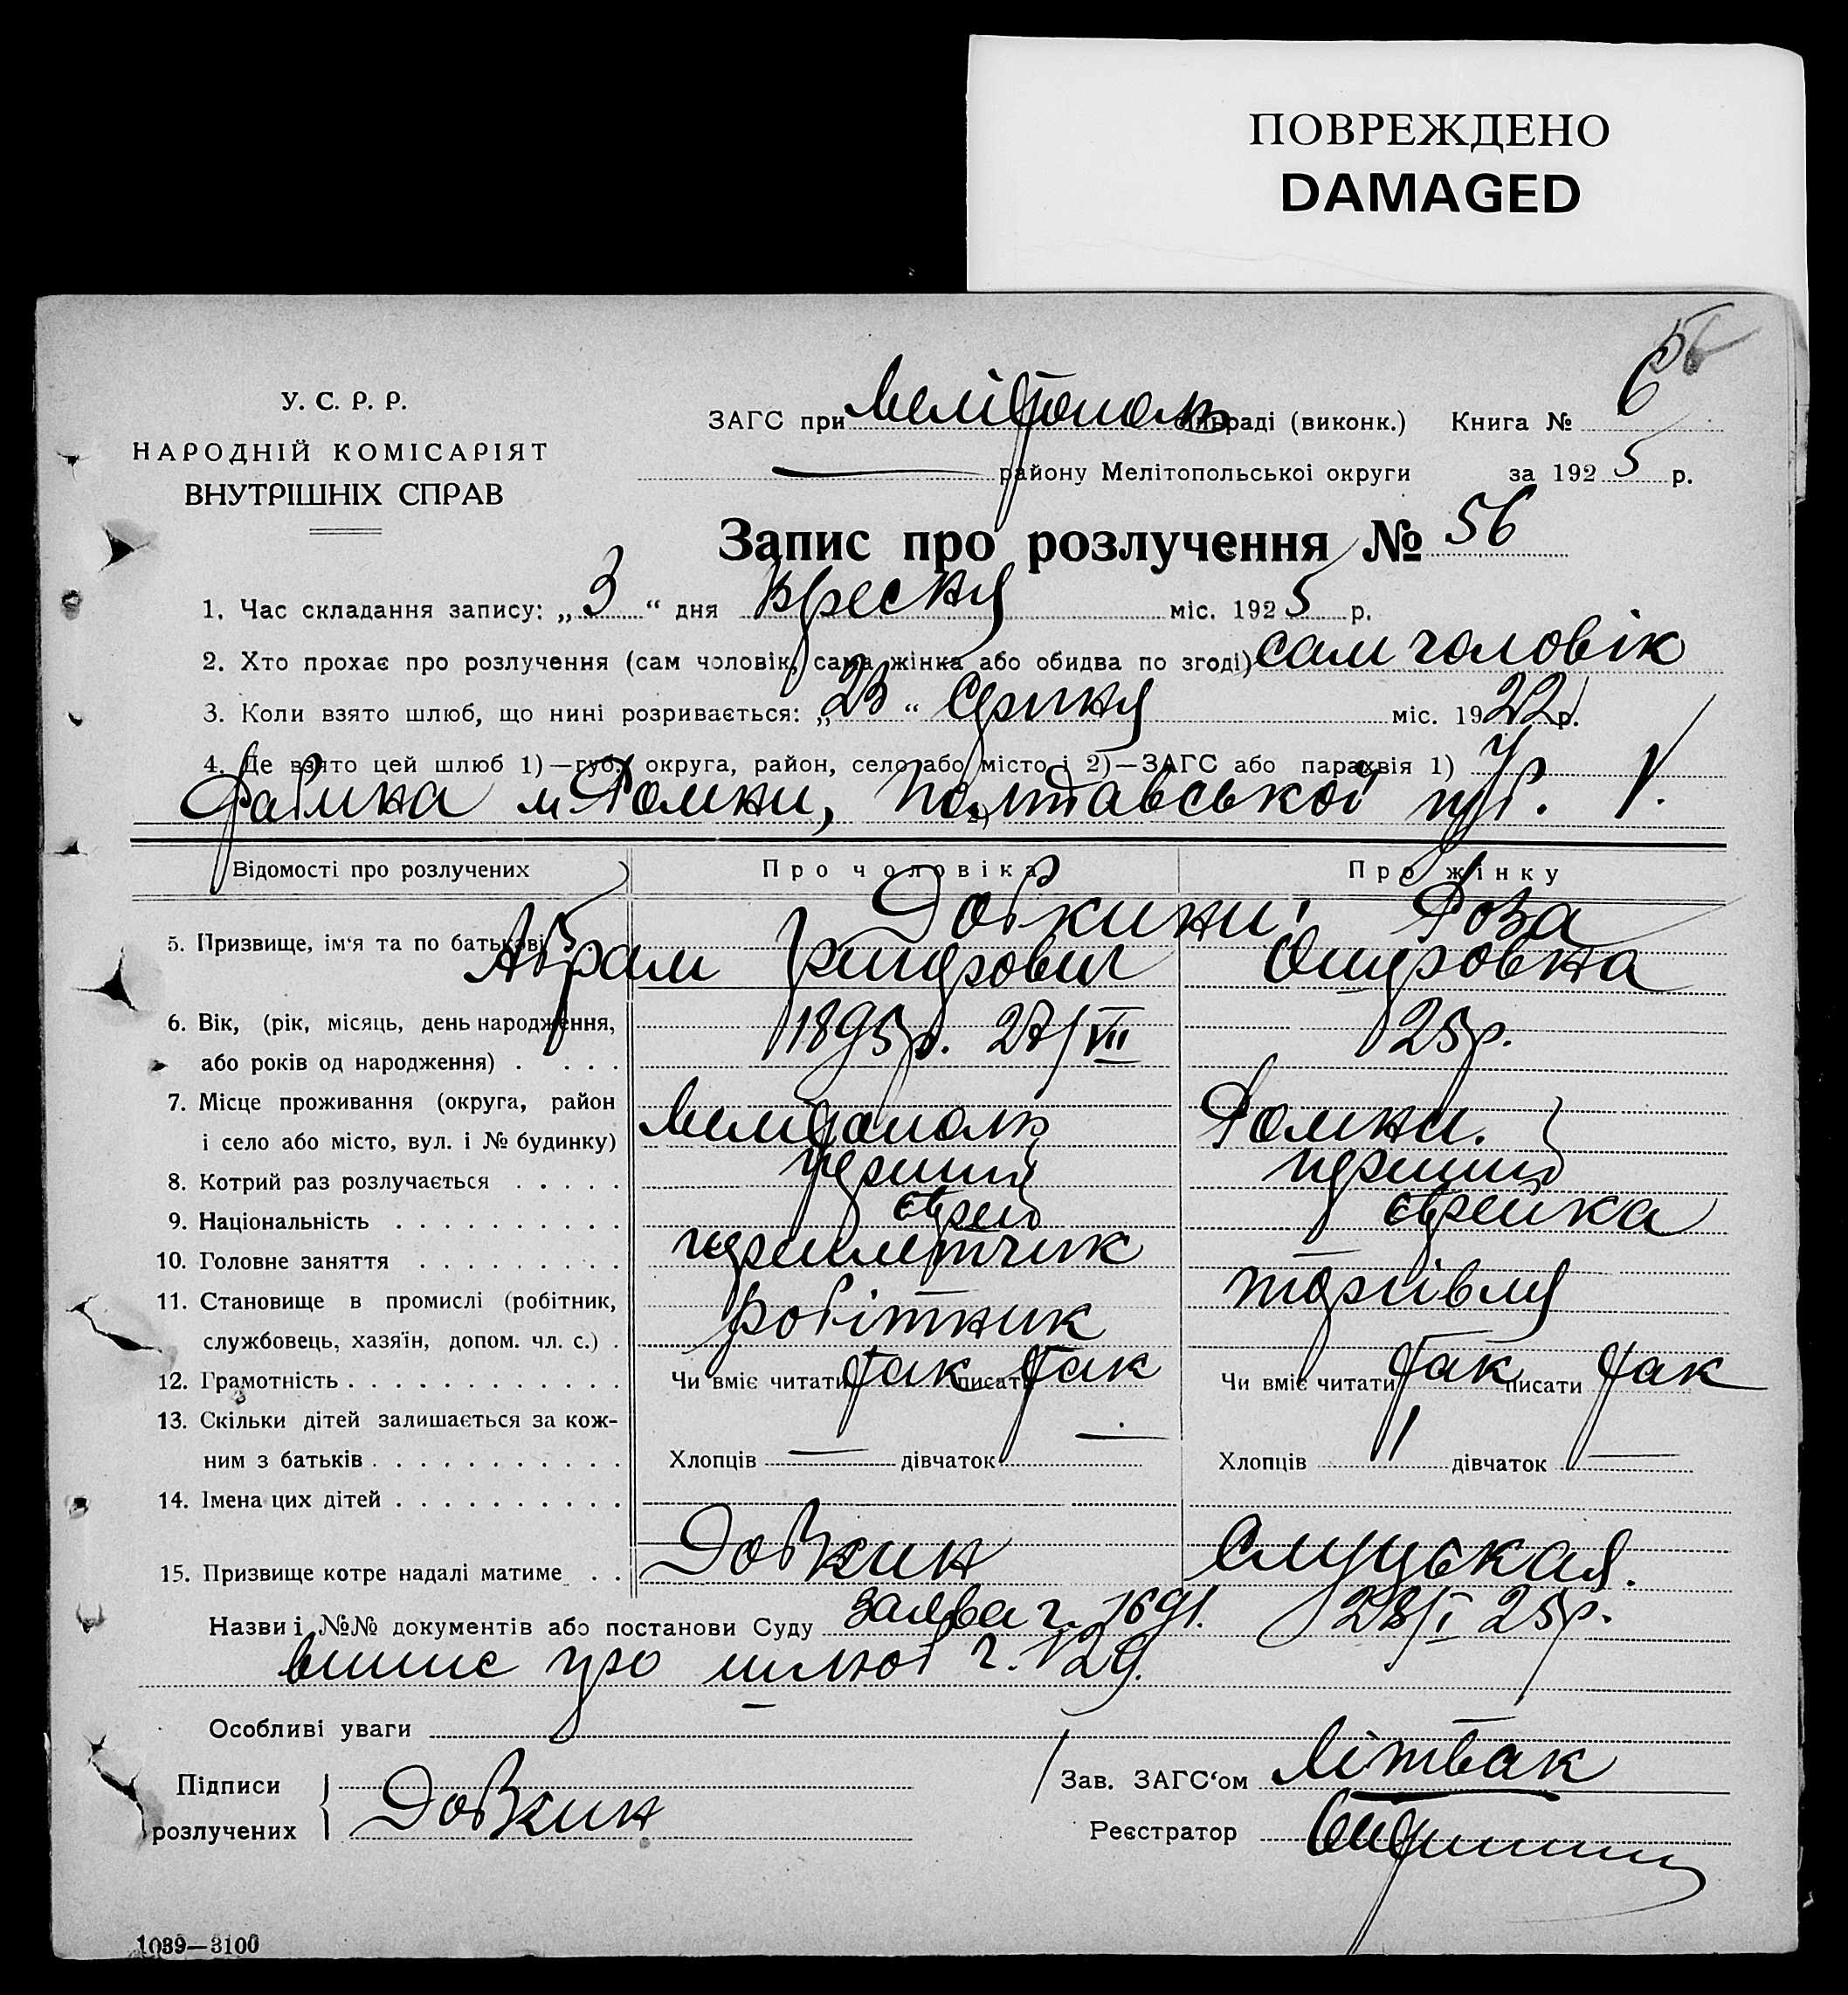 ПОВРЕЖДЕНО
DAMAGED
56
У. С. Р. Р.
НАРОДНІЙ КОМІСАРІЯТ
ВНУТРІШНІХ СПРАВ
ЗАГС при Мелітополь сільраді (виконк.) Книга № 6
— району Мелітопольської округи за 1925 р.
Запис про розлучення № 56
1. Час складання запису: „3“ дня Вресня міс. 1925 р.
2. Хто прохає про розлучення (сам чоловік, сама жінка або обидва по згоді) сам чоловік
3. Коли взято шлюб, що нині розривається: „23“ Серпня міс. 1922 р.
4. Де взято цей шлюб 1)—губ., округа, район, село або місто і 2)—ЗАГС або парахвія 1)
м Ромни, Полтавської 2)
Відомості про розлучених
Про чоловіка
Про жінку
5. Призвище, ім‘я та по батькові
Добкини Роза
Абрам
6. Вік, (рік, місяць, день народження,
або років од народження) . . . .
1895р. 27/VII
25р.
7. Місце проживання (округа, район
і село або місто, вул. і № будинку)
Мелітополь
Ромни.
8. Котрий раз розлучається . . . . .
перший
перший
9. Національність . . . . . . . . . .
єврей
єврейка
10. Головне заняття . . . . . . . . .
переплетчик
11. Становище в промислі (робітник,
службовець, хазяїн, допом. чл. с.) .
робітник
торгівля
12. Грамотність . . . . . . . . . . . .
Чи вміє читати так писати так
Чи вміє читати так писати так
13. Скільки дітей залишається за кож-
ним з батьків . . . . . . . . . . .
Хлопців — дівчаток —
Хлопців 1 дівчаток —
14. Імена цих дітей . . . . . . . . . .
15. Призвище котре надалі матиме . .
Добкин
Слуцькая.
Назви і №№ документів або постанови Суду заява ч. 1691. 28/I 25р.
випис про шлюб ч. 129.
Особливі уваги
Підписи
розлучених
Добкин
Зав. ЗАГС‘ом Літвак
Реєстратор
1039—3100